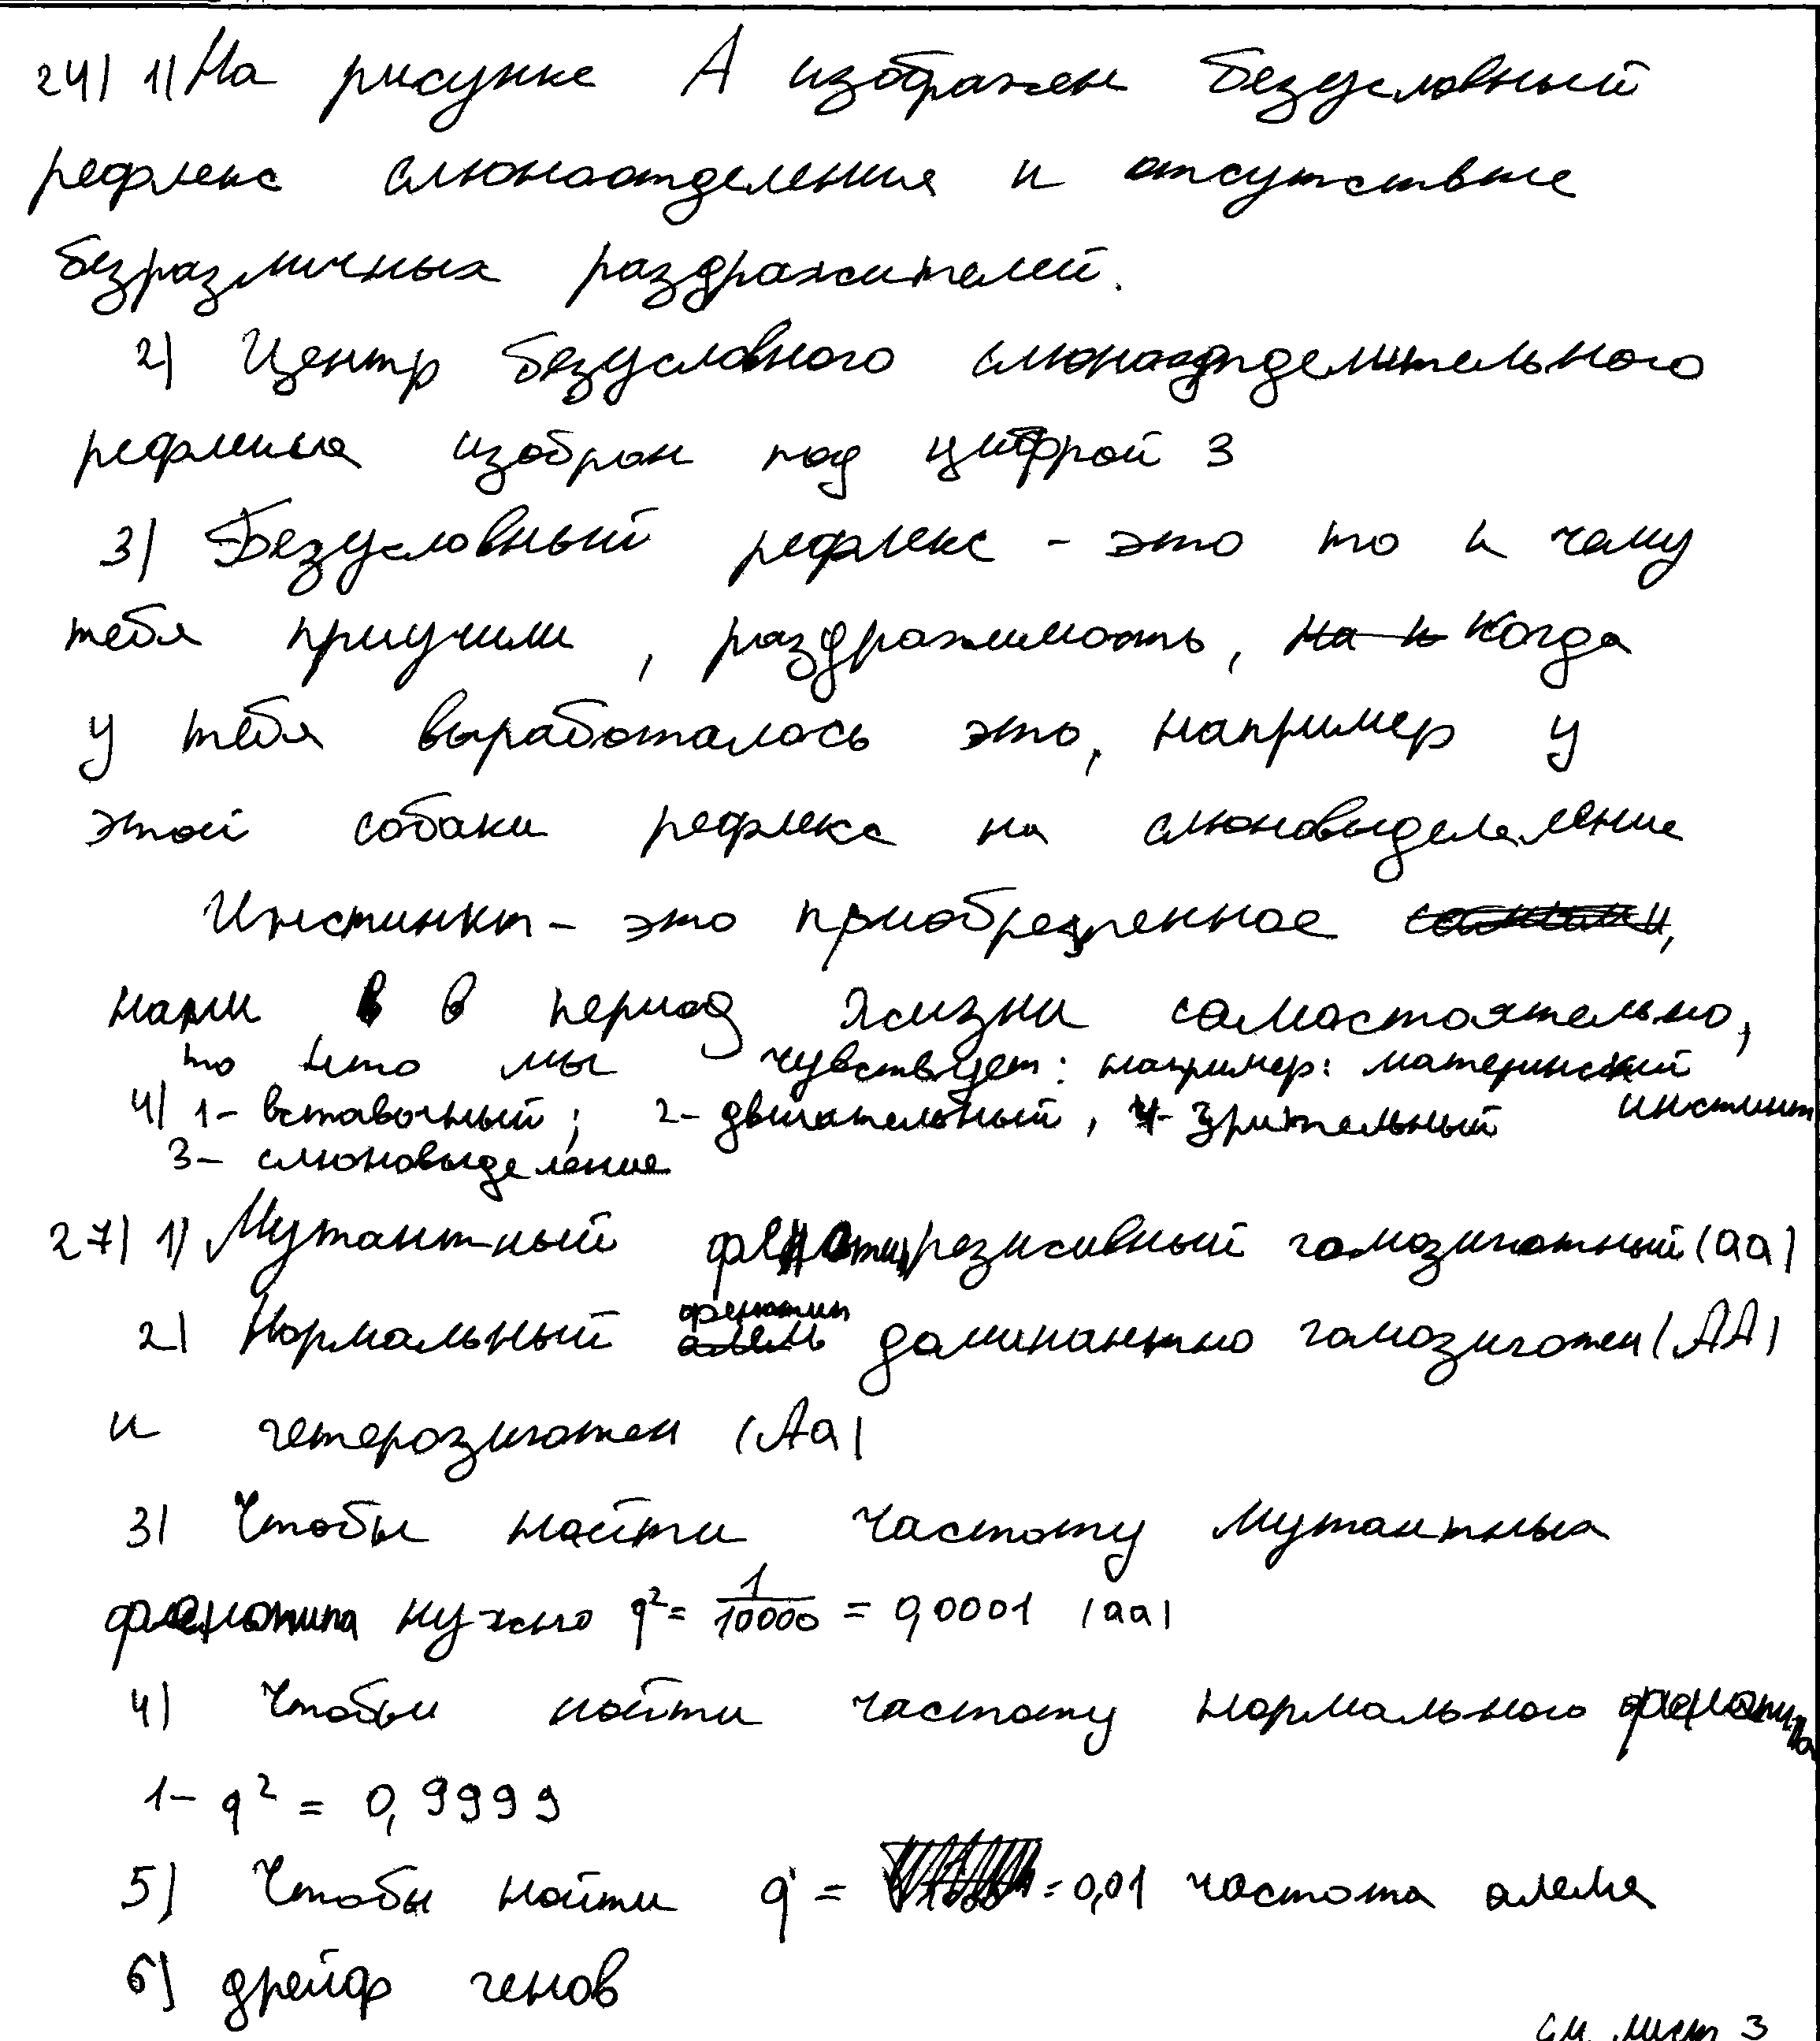 24) 1) На рисунке А изображен безусловный
рефлекс слюноотделения и отсутствие
безразличных раздражителей.
2) Центр безусловного слюноотделительного
рефлекса изобран под цифрой 3
3) Безусловный рефлекс - это то к чему
тебя приучили, раздражимость, на к когда
у тебя выработалось это, например у
этой собаки рефлекс на слюновыделеление
Инстинкт - это приобретенное
нами в в период жизни самостоятельно,
то что мы чувствует: например: материнский
инстинкт
4) 1- вставочный; 2- двигательный, 4- зрительный
3- слюновыделение
27) 1) Мутантный фенотип резисивный гомозиготный (аа)
2) Нормальный фенотип доминантно гомозиготен (АА)
и гетерозиготен (Аа)
3) Чтобы найти частоту мутантных
фенотипа нужно q² = 1/10000 = 0,0001 (аа)
4) Чтобы найти частоту нормального фенотипа
1- q² = 0,9999
5) Чтобы найти q = = 0,01 частота алеля
6) дрейф генов
см. лист 3